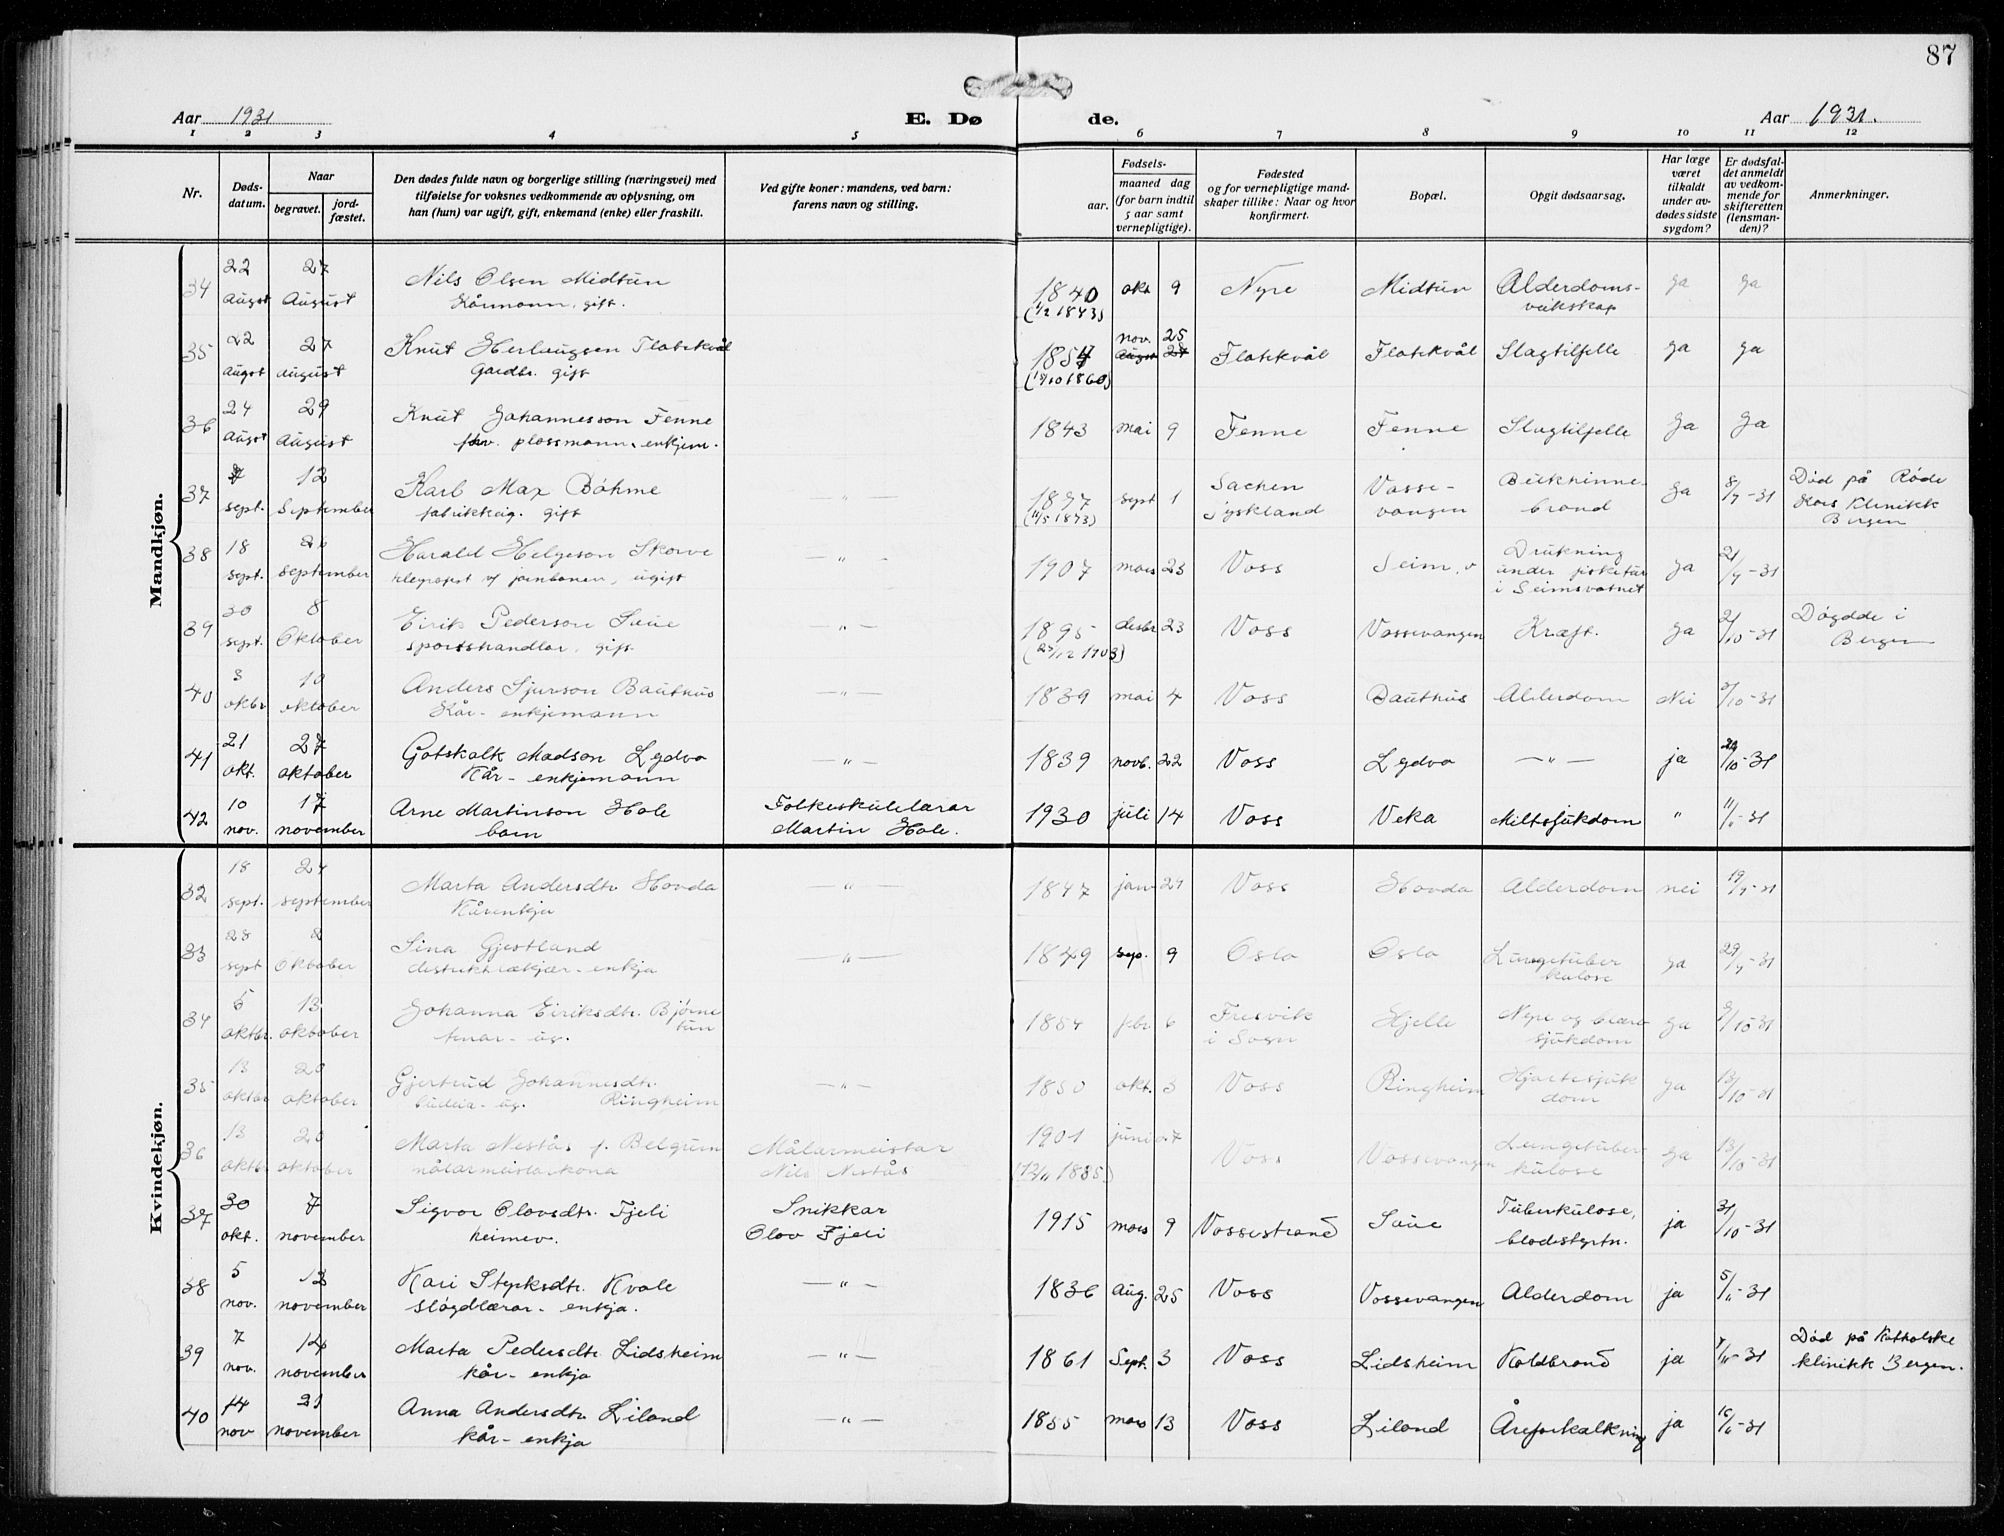 87
Aar 1931
E. Dø
de.
Aar 1931.
1 2 3 4 5 6 7 8 9 10 11 12
Nr.
Døds-
datum.
Naar
begravet.
jord-
fæstet.
Den dødes fulde navn og borgerlige stilling (næringsvei) med
tilføielse for voksnes vedkommende av oplysning, om
han (hun) var ugift, gift, enkemand (enke) eller fraskilt.
Ved gifte koner: mandens, ved barn:
farens navn og stilling.
Fødsels-
aar.
maaned dag
(for barn indtil
5 aar samt
vernepligtige).
Fødested
og for vernepligtige mand-
skaper tillike: Naar og hvor
konfirmert.
Bopæl.
Opgit dødsaarsag.
Har læge
været
tilkaldt
under av-
dødes sidste
sygdom?
Er dødsfal-
det anmeldt
av vedkom-
mende for
skifteretten
(lensman-
den)?
Anmerkninger.
Mandkjøn.
34 22 27 Nils Olsen Midtun 1840 okt 9 Nyre Midtun Alderdoms- ja ja
August August Kårmann, gift. (1/2 1873) veikskap
35 22 27 Knut Herlaugsen Flatekvål 1854 nov. 25 Flatekvål Flatekvål Slagtilfelle ja ja
August August Gardbr. gift (18/10 1860)
36 24 29 Knut Johannesson Fenne 1843 mai 9 Fenne Fenne Slagtilfelle Ja Ja
August August plassmann, enkjem.
37 12 Karl Max Böhme sept 1 Sachen Vosse- Bukhinne- Ja 8/9-31 Død på Røde
sept. September fabrikkeig. gift (11/5 1873) Tyskland vangen brand Kors Klinikk
Bergen
38 18 Harald Helgeson Skorve 1907 mars 23 Voss Seim, v Drukning Ja 21/9-31
sept. September telegrafist v/ jarnbanen, ugift under fisketur
i Seimsvatnet
39 30 8 Eirik Pederson Saue 1895 desbr 23 Voss Vossevangen Kræft. Ja 2/10-31 Døydde i
sept. Oktober sportshandlar, gift (25/12 1903) Bergen
40 3 10 Anders Sjurson Bauthus — " — 1839 mai 4 Voss Bauthus Alderdom Nei 5/10-31
okbr oktober Kår- enkjemann
41 21 27 Gotskalk Madson Lydvo — " — 1839 novb. 22 Voss Lydvo — " — ja 10-31
okt. oktober Kår- enkjemann
42 10 17 Arne Martinson Hole Folkeskulelærar 1930 juli 14 Voss Veka Miltsjukdom " 11/11-31
nov. november barn Martin Hole.
Kvindekjøn.
32 18 24 Marta Andersdtr. Hovda — " — 1847 jan 24 Voss Hovda Alderdom nei 19/9-31
sept. september Kårenkja
33 28 8 Sina Gjestland — " — 1849 sep. 9 Oslo Oslo Lungetuber ja 29/9-31
sept Oktober enkja kulose
34 6 13 Johanna Eiriksdtr. Bjørne 1854 febr 6 Fresvik Hjelle Nyre og blære ja 9/10-31
oktbr. oktober tun i Sogn sjukdom
tenar- ug.
35 13 20 Gjertrud Johannesdtr. — " — 1850 okt. 3 Voss Ringheim Hjartesjuk ja 13/10-31
oktbr oktober budeia- ug. Ringheim dom
36 13 20 Marta Nestås f. Belgum Målarmeistar 1901 juni 27 Voss Vossevangen Lungetuber- ja 13/10-31
oktbr oktober målarmeistarkona Nils Nestås kulose
37 30 7 Sigvor Olavsdtr. Fjeli Snikkar 1915 mars 9 Vossestrand Saue Tuberkulose, ja 31/10-31
okt. november heimev. Olav Fjeli blodstyrtn.
38 5 12 Kari Styrksdtr. Kvale — " — 1836 Aug. 25 Voss Vossevangen Alderdom ja 5/11-31
nov. november sløgdlærar- enkja.
39 7 14 Marta Pedersdtr. Lidsheim — " — 1861 Sept. 3 Voss Lidsheim Koldbrand ja 7/11-31 Død på Katholske
nov. november kår- enkja klinikk Bergen.
40 14 21 Anna Andersdtr. Liland — " — 1855 mars 13 Voss Liland Åreforkalkning ja 16/11-31
nov november kår- enkja